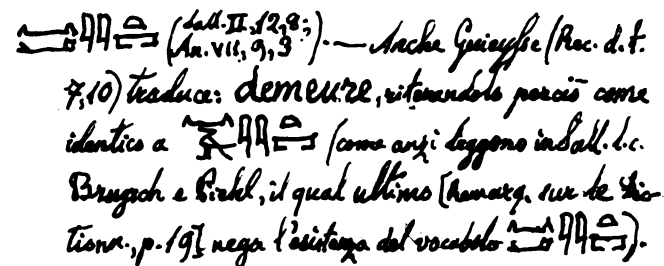 (Sall. II, 12, 8;
An. VII, 9, 3). — Anche Guieysse (Rec. d. t.
7,10) traduce: demeure, ritenendolo perciò come
identico a (come anzi leggono in Sall. l. c.
Brugsch e Piehl, il qual ultimo [Remarq. sur le Dic-
tionn., p. 19] nega l'esistenza del vocabolo ).